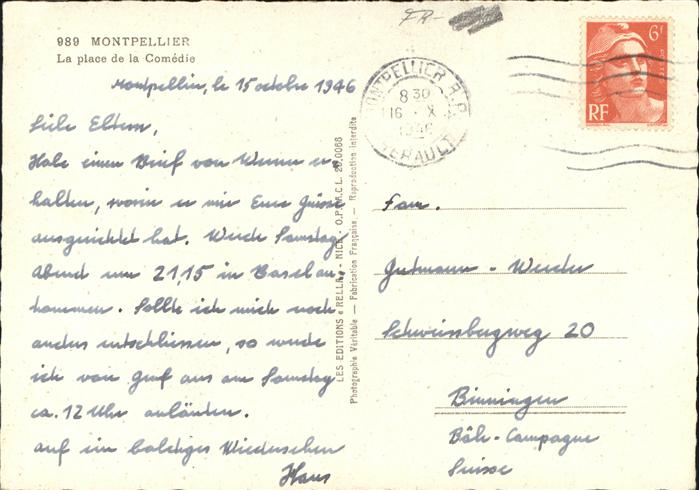 FR-
989 MONTPELLIER
La place de la Comédie
Montpellier, le 15 octobre 1946
Liebe Eltern,
Habe einen Brief von Werner er-
halten, worin er mir Eure Grüsse
ausgerichtet hat. Werde Samstag
Abend um 21,15 in Basel an-
kommen. Sollte ich mich noch
anders entschliessen, so werde
ich von Genf aus am Samstag
ca. 12 Uhr anläuten.
Auf ein baldiges Wiedersehen
Hans
LES EDITIONS « RELLA » - NICE - O.P.I.M.C.L. 20,0066
Photographie Véritable — Fabrication Française — Reproduction Interdite
MONTPELLIER R.P.
8 30
16 - X
1946
HERAULT
6F
RF
Fam.
Gutmann - Werder
Schweissbergweg 20
Binningen
Bâle-Campagne
Suisse